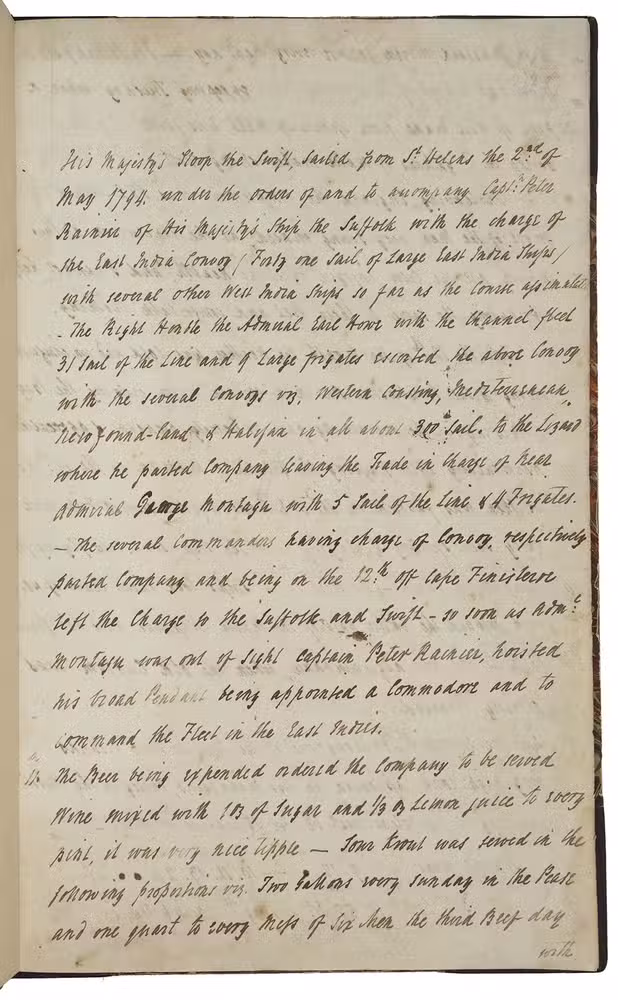 His Majesty's Sloop the Swift, sailed from St. Helens the 2nd of
May 1794. under the orders of and to accompany Captn. Peter
Rainier of His Majesty's Ship the Suffolk with the charge of
the East India Convoy / Forty one Sail of Large East India Ships /
with several other West India Ships so far as the Course
- The Right Honble the Admiral Earl Howe with the Channel fleet
31 Sail of the Line and 9 Large frigates escorted the above Convoy
with the several Convoys viz. Western Coasting, Mediterranean,
Newfound-land & Halifax in all about 300 Sail. to the Lizard
where he parted Company leaving the Trade in Charge of Rear
Admiral George Montagu with 5 Sail of the Line & 4 Frigates.
- The several Commanders having charge of Convoy, respectively
parted Company and being on the 12th. off Cape Finisterre
left the Charge to the Suffolk and Swift - so soon as Adml.
Montagu was out of Sight Captain Peter Rainier, hoisted
his broad Pendant being appointed a Commodore and to
Command the Fleet in the East Indies.
The Beer being expended ordered the Company to be served
Wine mixed with of Sugar and 1/3 oz Lemon juice to every
pint, it was very nice tipple — Sour Krout was served in the
following proportions viz. Two Gallons every Sunday in the Pease
and one quart to every Mess of Six Men the third Beef day
with